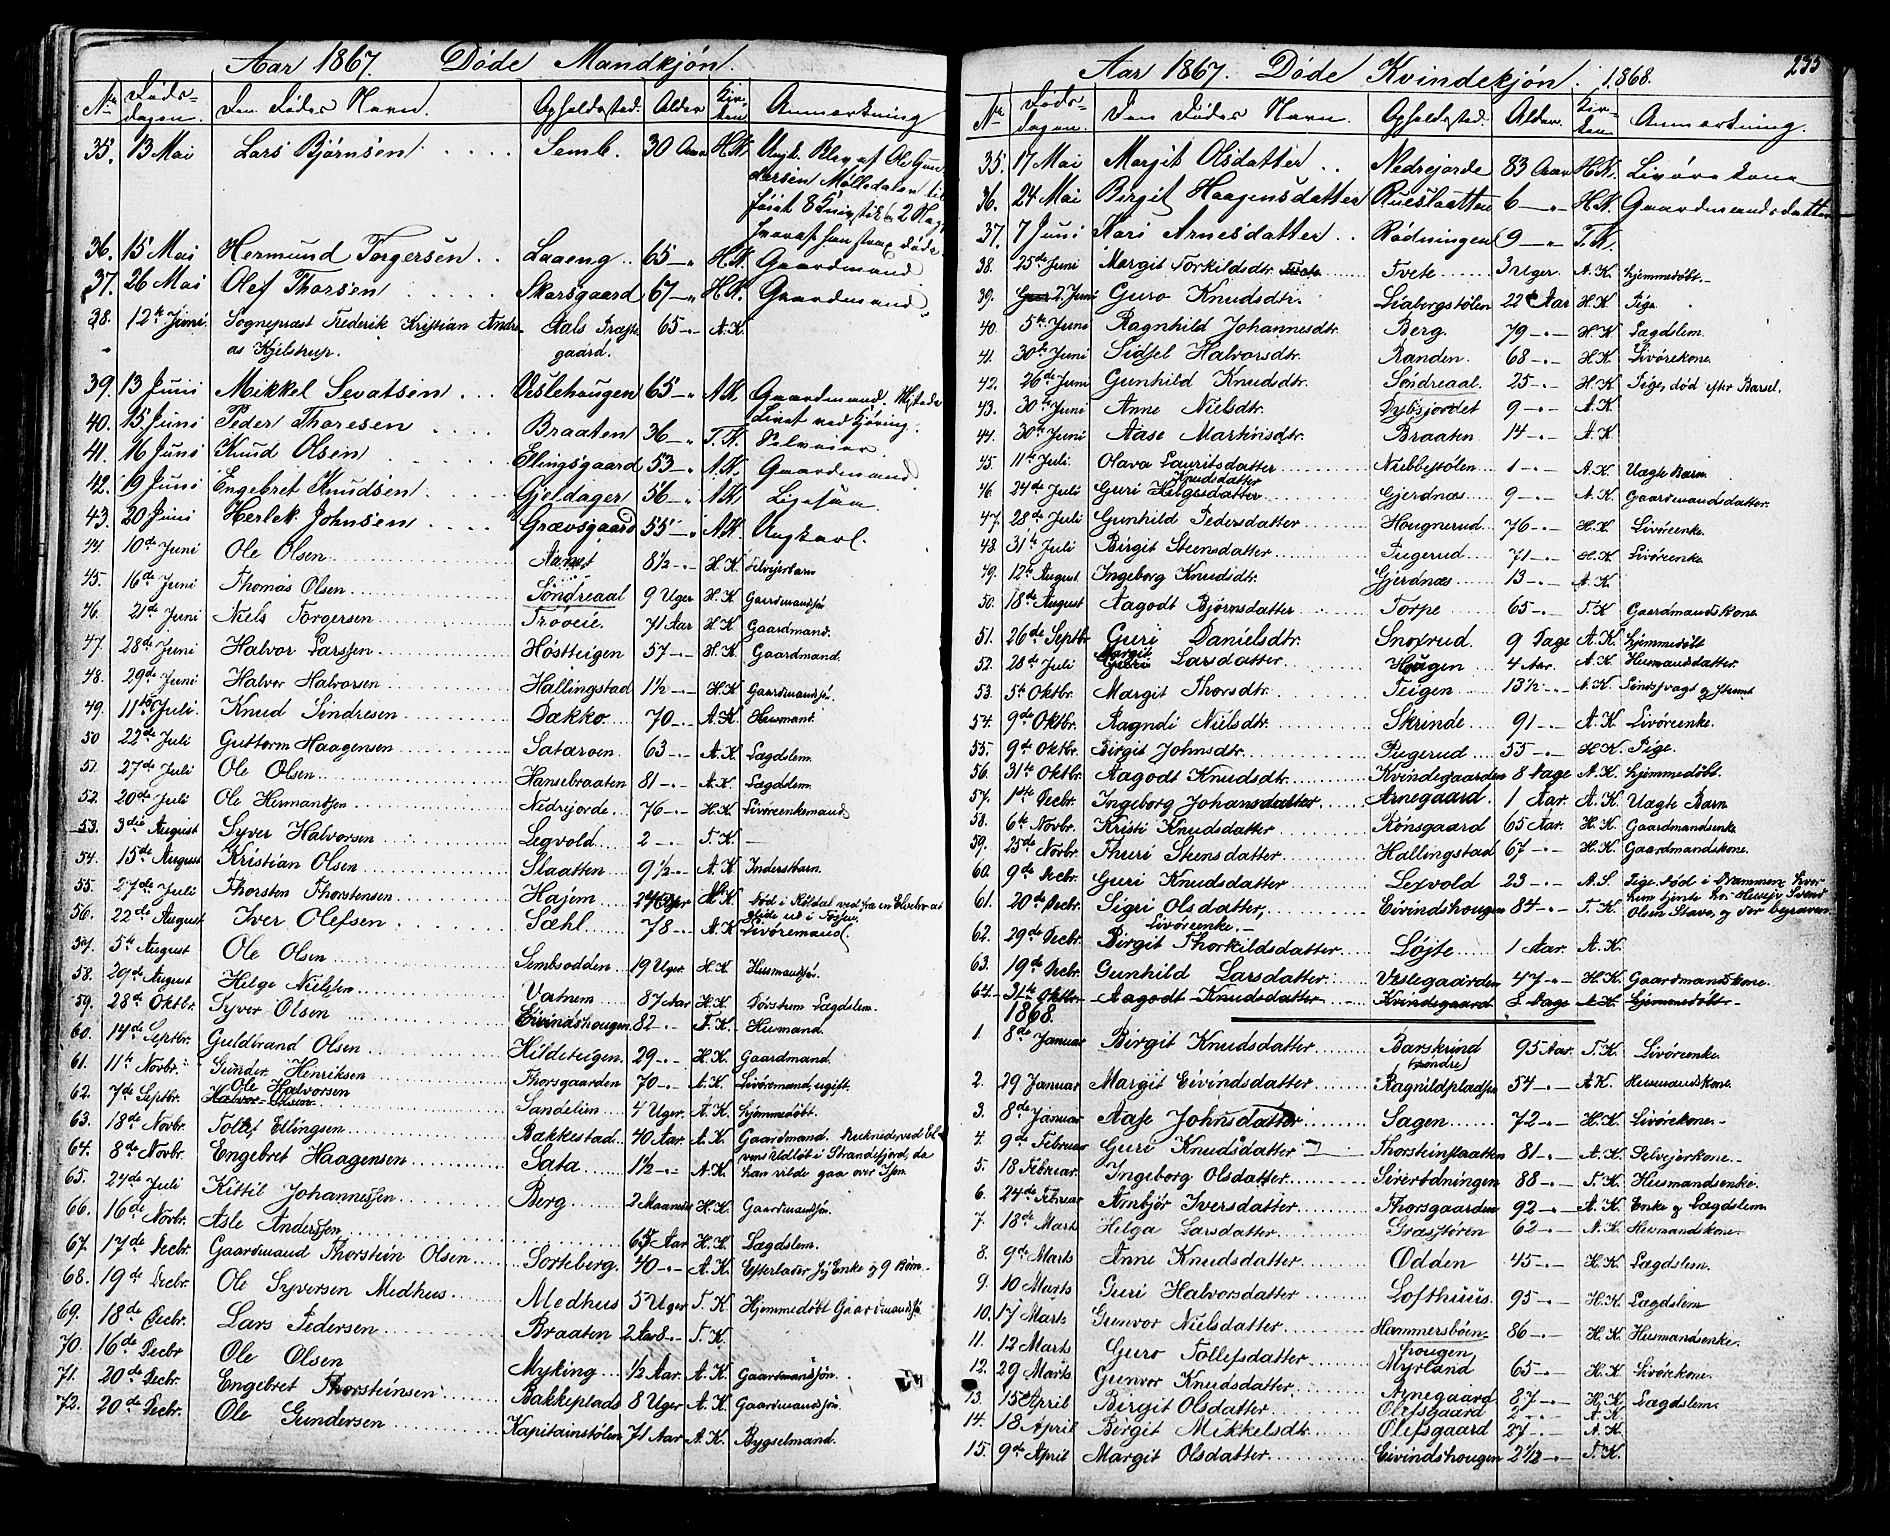 Aar 1867. Døde Mandkjøn.
No Døds-dagen. Den Dødes Navn. Opholdssted. Alder Kir-ken Anmerkning
35. 13 Mai Lars Bjørnsen Semb. 30 Aar H.K. Ungk. Blev af Ole Gun
dersen Mølledalen til
føiet 8 Knivstik (2 Nag
hvoraf han strax døde.
36. 15 Mai Hermund Torgersen Laaeng 65 H.K. Gaardmand
37. 26 Mai Olef Thorsen Skarsgaard 67 H.K. Gaardmand
38. 12te Juni Sognepræst Frederik Kristian Andre- Aals Præste 65 A.K.
as Kjelstrup. gaard.
39. 13 Juni Mikkel Sevatsen Veslehaugen 65 A.K. Gaardmand. Mistede
Livet ved Kjøring.
40. 15 Juni Peder Thoresen Braaten 36 T.K. Selveier
41. 16 Juni Knud Olsen Ellingsgaard 53 A.K. Gaardmand
42. 19 Juni Engebret Knudsen Gjeldager 56 A.K. Ligesaa.
43. 20 Juni Herlek Johnsen Grævsgaard 55 A.K. Ungkarl.
44. 10de Juni Ole Olsen 8½ H.K. Selvejerbarn
45. 16de Juni Thomas Olsen Søndreaal 9 Uger H.K. Gaardmandsøn
46. 21de Juni Niels Torgersen Trøveie. 71 Aar H.K. Gaardmand.
47. 28de Juni Halvor Larssen Høstteigen 57 H.K. Gaardmand.
48. 29de Juni Halvor Halvorsen Hallingstad 1½ H.K. Gaardmandsøn
49. 11te Juli. Knud Sindresen Dækko 70 A.K. Husmand.
50 22de Juli Guttorm Haagensen Sataroen 63 A.K. Lægdslem.
51. 27de Juli Ole Olsen Hansebraaten 81 A.K. Lægdslem.
52. 20de Juli Ole Hermandsen Nedrejorde. 76 H.K. Livøreenkemand
53. 3die August Syver Halvorsen Legvold. 2 T.K.
54. 15de August Kristian Olsen Slaatten 9½ A.K. Inderstbarn.
55. 27de Juli Thorsten Thorstensen Hajem A.K. Død i Røldal ved fra en Elvebr at
glide ud i Fossen.
56. 22de August Iver Olefsen Sæhl 78 A.K Livøremand.
57. 5te August Ole Olsen Sembsodden 19 Uger H.K. Husmandsøn.
58. 29de August Helge Nielsen Vatnem 87 Aar H.K. Døvstum Lægdslem.
59. 28de Oktbr. Syver Olsen Eivindshougen 82 T.K. Husmand.
60. 14de Septbr. Guldbrand Olsen Hildeteigen 29 H.K. Gaardmand.
61. 11te Novbr. Gunder Henriksen Thorsgaarden 70 A.K. Livørmand, ugift.
62. 7de Septbr. Ole Halvorsen Sandelien 4 Uger. A.K. hjemmedøbt.
Halvor Olsen
63. 18de Novbr. Tollef Ellingsen Bakkestad 40 Aar. A.K. Gaardmand. Druknede ved El-
vens Udløb i Strandefjord, da
64. 8de Novbr. Engebret Haagensen Sata 1½ A.K. han vilde gaa over Isen.
65. 24de Juli Kittil Johannessen Berg 2 Maaneder H.K. Gaardmandsøn.
66. 16de Novbr. Asle Anderssen 65 Aar H.K. Lægdslem.
67. 17de Decbr. Gaardmand Thorstein Olsen Sorteberg. 40 A.K. Efterlader sig Enke og 9 Børn.
68. 19de Decbr. Ole Syversen Medhus Medhus 5 Uger T.K. Hjemmedøbt Gaardmandsøn
69. 18de Decbr. Lars Pedersen Braaten 2 Aar T.K.
70. 16de Decbr Ole Olsen Myking ½ Aar. A.K. Gaardmandsøn.
71. 20de Decbr. Engebret Thorsteinsen Bakkeplads 8 Uger A.K. Gaardmandsøn.
72. 20de Decbr. Ole Gundersen Kapitainstølen 71 Aar A.K. Bygselmand.
Aar 1867. Døde Kvindekjøn. 1868. 233
No Døds-dagen. Den Dødes Navn. Opholdssted. Alder. Kir-ken Anmerkning.
35. 17 Mai Margit Olsdatter Nedrejorde 83 Aar H.K. Livørekone
36. 24 Mai Birgit Haagensdatter Rueslaatten 6 H.K. Gaardmandsdatter
37. 7 Juni Kari Arnesdatter Rødningen 9 T.K.
38. 25de Juni Margit Torkildsdtr. Tveto Tvete 3 Uger A.K. hjemmedøbt.
39. 2. Juni Guro Knudsdtr. Liabergstølen 22 Aar H.K Pige.
40. 5te Juni Ragnhild Johannesdtr. Berg. 79 H.K Lægdslem.
41. 30te Juni Sidsel Halvorsdtr. Randen. 68 H.K. Livørekone.
42. 26de Juni Gunhild Knudsdtr. Søndreaal. 25 H.K Pige, død efter Barsel.
43. 30te Juni Anne Nielsdtr. Dybsjordet 9 A.K
44. 30te Juni Aase Martinsdtr. Braaten 14 A.K
45. 11te Juli. Olava Lauritsdatter Nubbestølen 1 A.K Uægte Barn
Knudsdatter
46. 24de Juli Guri Helgesdatter Gjerdnæs 9 A.K Gaardmandsdatter.
47. 28de Juli Gunhild Pedersdatter Hougnerud 76 H.K. Livøreenke.
48. 31te Juli Birgit Steensdatter Pugerud 71 H.K Livøreenke.
49. 12te August Ingeborg Knudsdtr. Gjerdnæs 13 A.K
50. 18de August Aagodt Bjørnsdatter Torpe 65 T.K Gaardmandskone.
51. 26de Septbr Guri Danielsdtr. Snoxrud. 9 Dage A.K. hjemmedøbt
Margit
52. 28de Juli Guri Larsdatter Hougen 4 Aar. A.K Husmandsdatter.
53. 5te Oktbr. Margit Thorsdtr. Teigen 13½ A.K. Sindssvag og Stum
54. 9de Oktbr. Ragndi Nielsdtr. Skrinde. 91 A.K Livøreenke.
55. 9de Oktbr. Birgit Johnsdtr. Pugerud 55 H.K Pige.
56. 31te Oktbr. Aagodt Knudsdtr. Kvindegaarden 8 Dage A.K. hjemmedøbt.
57. 1ste Decbr. Ingeborg Johansdatter Arnegaard. 1 Aar. A.K Uægte Barn
58. 6te Novbr. Kristi Knudsdatter Rønsgaard 65 Aar. H.K. Gaardmandsenke
59. 25de Novbr. Thuri Steensdatter Hallingstad 67 H.K. Gaardmandskone.
60. 9de Decbr. Guri Knudsdatter Lexvold 23 A.S. Pige død i Drammen hvor
hun tjente hos Husejer Svend
61. 20de Decbr. Sigri Olsdatter, Eivindshougen 84 T.K Olsen Stave, og der begraven.
Livøreenke.
62. 29de Decbr. Birgit Thorkildsdatter Løjte 1 Aar. A.K.
63. 19de Decbr. Gunhild Larsdatter Veslegaarden 47 H.K Gaardmandskone.
64. 31te Oktbr. Aagodt Knudsdatter Kvindegaard 8 Dage A.K. hjemmedøbt
1868.
1. 8de Januar Birgit Knudsdatter Barskrind 95 Aar. T.K. Livøreenke.
(søndre)
2. 29 Januar Margit Eivindsdatter Ragnildpladsen 54 A.K. Husmandskone.
3. 8de Januar Aase Johnsdatter Sagen 72 H.K. Livørekone.
4. 9de Februar Guri Knudsdatter Thorsteinslaatten 81 A.K Selvejerkone.
5. 18 Februar. Ingeborg Olsdatter Sirerødningen 88 T.K Husmandsenke.
6. 24de Februar Arnbjør Iversdatter Thorsgaarden 92 A.K Enke og Lægdslem.
7. 18de Marts Helga Larsdatter Græsstøren 62 A.K Husmandskone.
8. 9de Marts Anne Knudsdatter Odden 45 H.K Lægdslem.
9. 10 Marts Guri Halvorsdatter Lofthuus 95 H.K Lægdslem
10. 17 Marts Gunvor Nielsdatter Hammersbøen- 86 H.K Husmandsenke.
hougen
11. 12 Marts Guro Tollefsdatter Myrland 65 H.K. Livørekone.
12. 29 Marts Gunvor Knudsdatter Arnegaard 87 H.K. Lægdslem.
13. 15 April Birgit Olsdatter Olefsgaard 2 A.K.
14. 18 April Birgit Mikkelsdtr. Olefsgaard 27 A.K.
15. 9de April Margit Olsdatter Eivindshougen 2½ T.K.